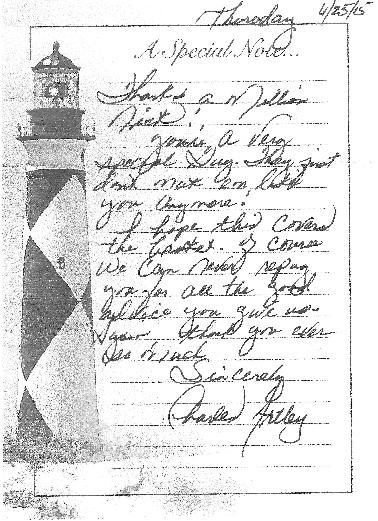 Thursday 4/25/15
A Special Note...
Thanks a Million
Nick!
Your a very
special Guy. They just
dont make em like
you anymore.
I hope this covers
the . Of course
we can never repay
you for all the good
advice you give us.
Again thank you ever
so much.
Sincerely
Charles